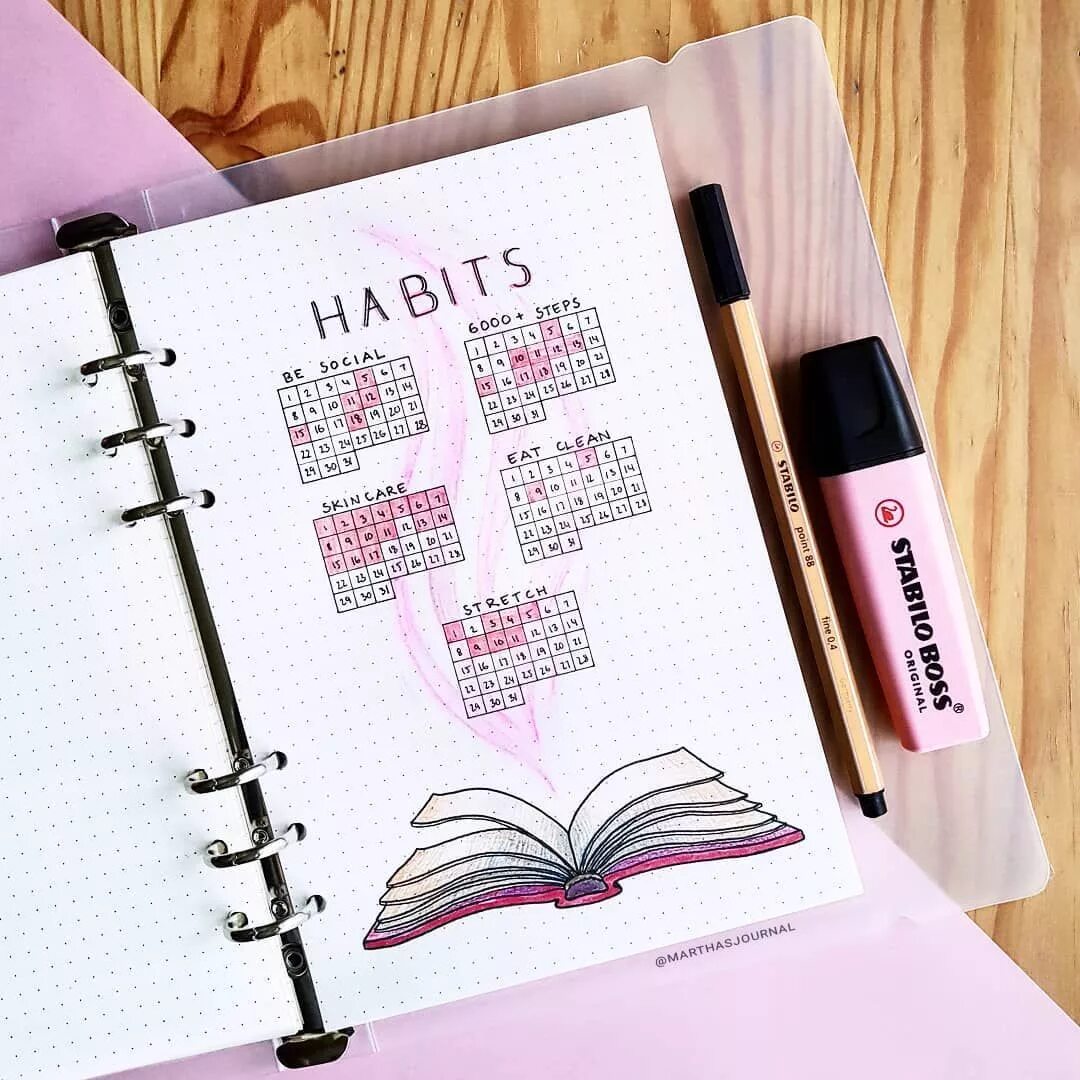 HABITS
BE SOCIAL
1 2 3 4 5 6 7
8 9 10 11 12 13 14
15 16 17 18 19 20 21
22 23 24 25 26 27 28
29 30 31
6000+ STEPS
1 2 3 4 5 6 7
8 9 10 11 12 13 14
15 16 17 18 19 20 21
22 23 24 25 26 27 28
29 30 31
SKINCARE
1 2 3 4 5 6 7
8 9 10 11 12 13 14
15 16 17 18 19 20 21
22 23 24 25 26 27 28
29 30 31
EAT CLEAN
1 2 3 4 5 6 7
8 9 10 11 12 13 14
15 16 17 18 19 20 21
22 23 24 25 26 27 28
29 30 31
STRETCH
1 2 3 4 5 6 7
8 9 10 11 12 13 14
15 16 17 18 19 20 21
22 23 24 25 26 27 28
29 30 31
@MARTHASJOURNAL
STABILO point 88 fine 0,4
STABILO BOSS®
ORIGINAL